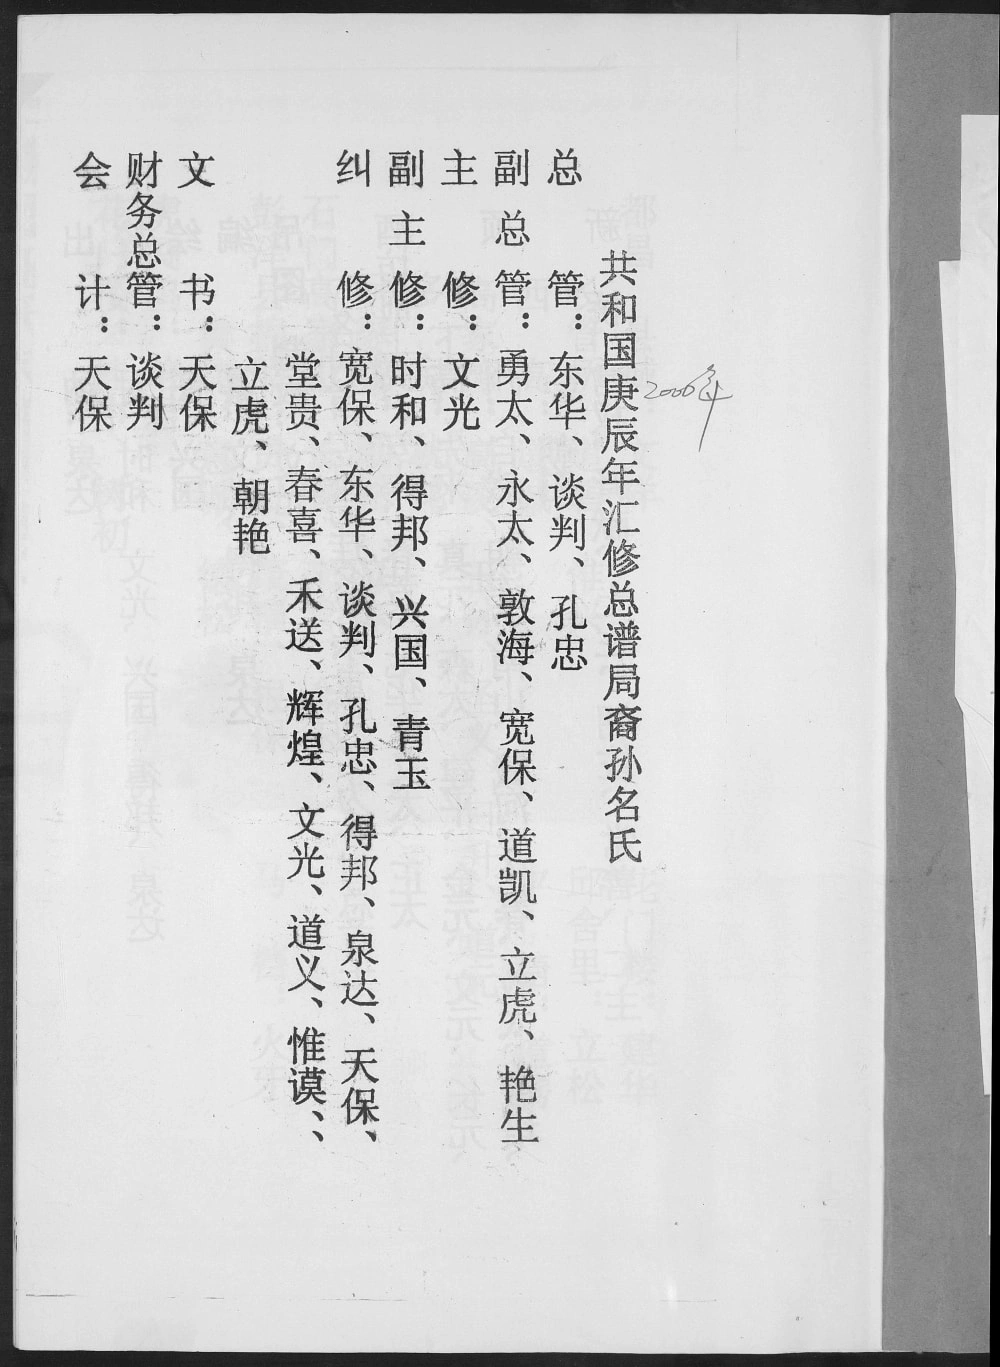 共和国庚辰年汇修总谱局裔孙名氏
2000年
总管：东华、谈判、孔忠
副总管：勇太、永太、敦海、宽保、道凯、立虎、艳生
主修：文光
副主修：时和、得邦、兴国、青玉
纠修：宽保、东华、谈判、孔忠、得邦、泉达、天保、
堂贵、春喜、禾送、辉煌、文光、道义、惟谟、、
立虎、朝艳
文书：天保
财务总管：谈判
会计：天保